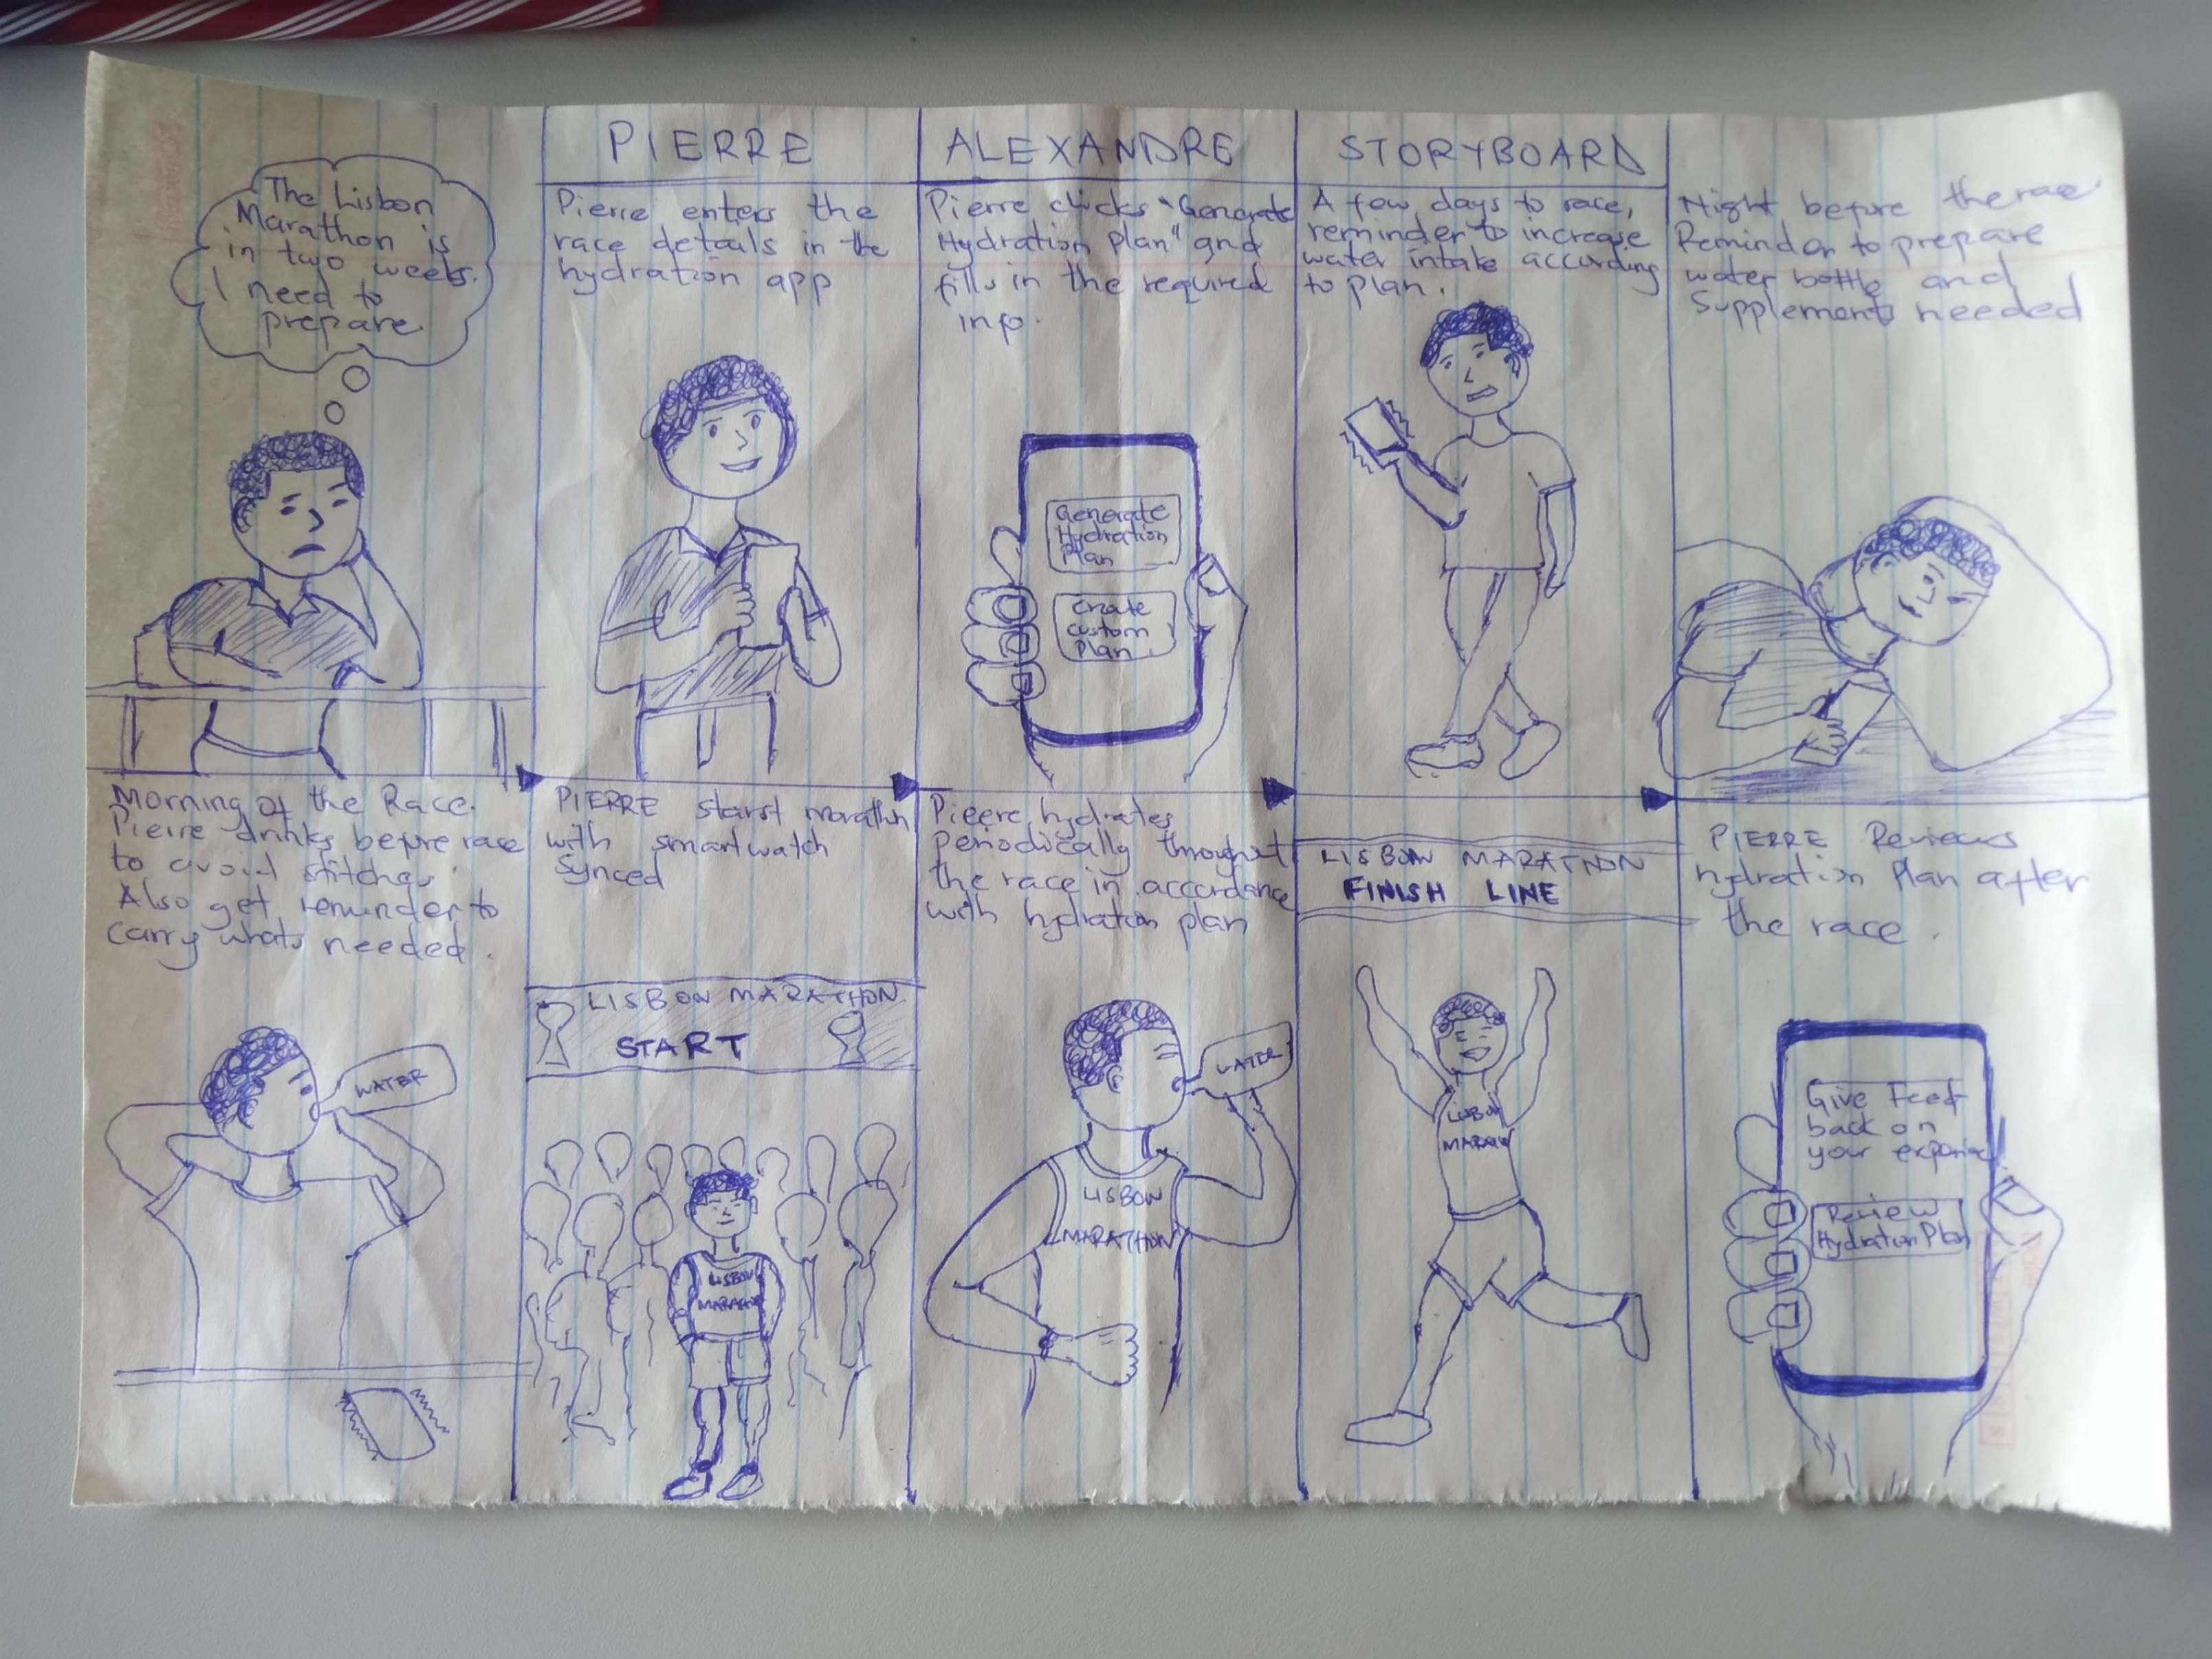 PIERRE ALEXANDRE STORYBOARD
The Lisbon
Marathon is
in two weeks.
I need to
prepare
Pierre enters the
race details in the
hydration app
Pierre clicks "Generate
Hydration plan" and
fills in the required
info.
Generate
Hydration
Plan
Create
custom
Plan
A few days to race,
reminder to increase
water intake according
to plan.
Night before the race
Reminder to prepare
water bottle and
Supplements needed
Morning of the Race.
Pierre drinks before race
to avoid stitches.
Also get reminder to
carry whats needed.
WATER
PIERRE starst marathn
with smartwatch
synced
LISBON MARATHON
START
LISBON
Pieere hydrates
periodically throughout
the race in accordance
with hydration plan
WATER
LISBON
MARATHON
LISBON MARATHON
FINISH LINE
LISBON
PIERRE Reviews
hydration Plan after
the race.
Give Feed
back on
your
Review
Hydration Plan